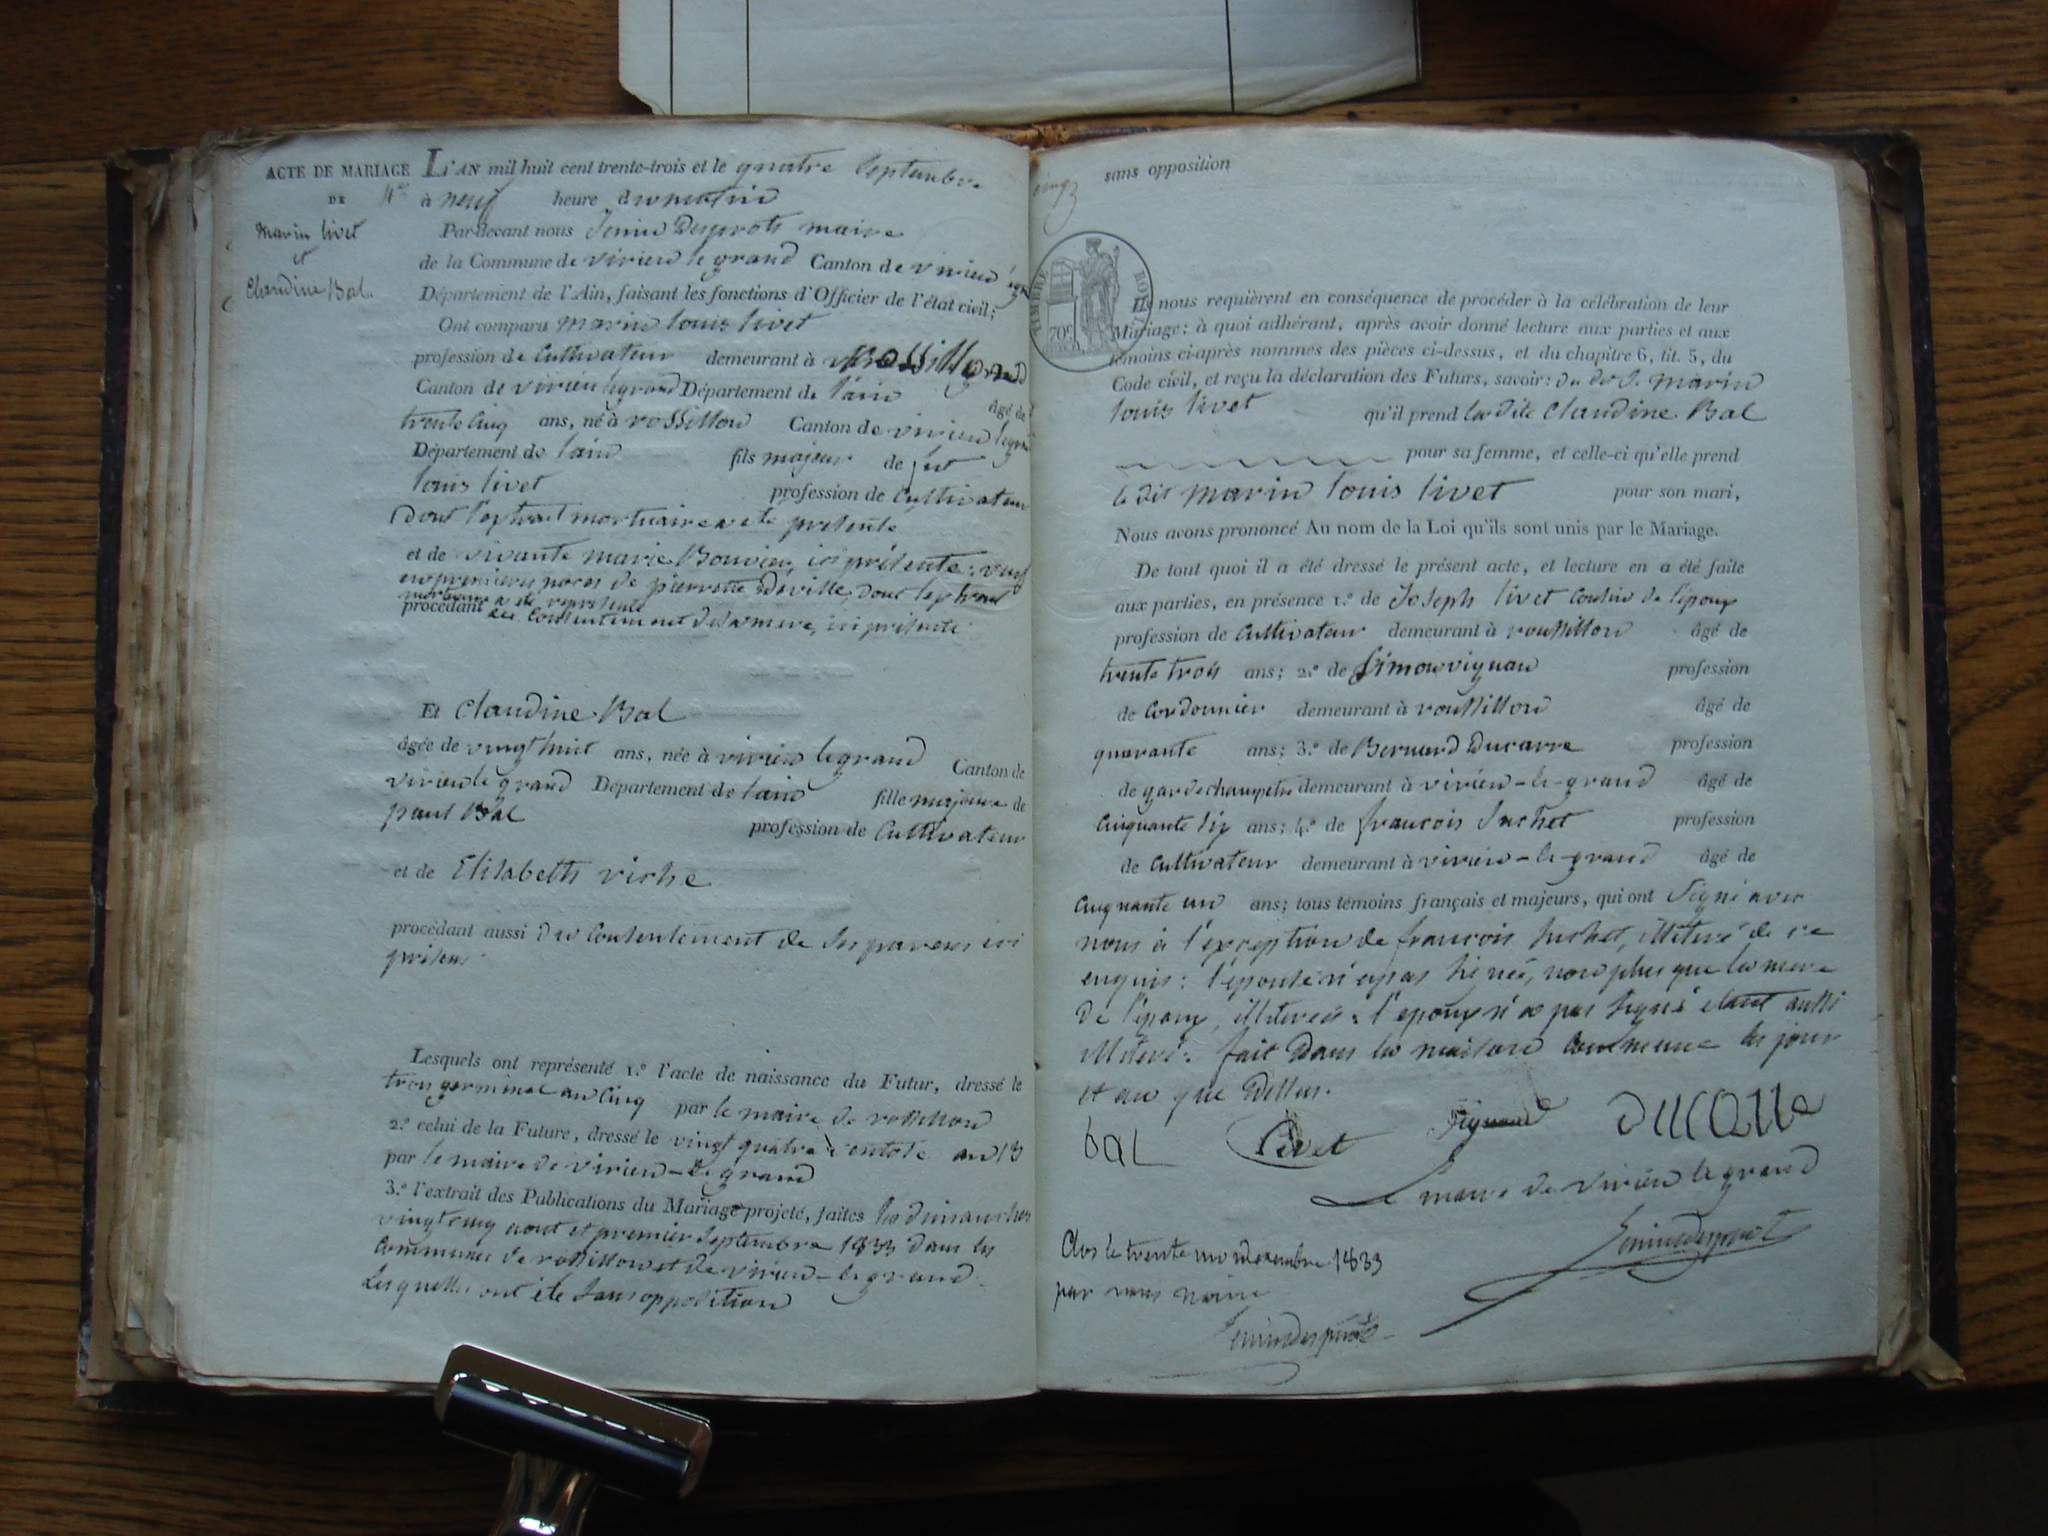 ACTE DE MARIAGE
DE
Marin livet
et
Claudine Bal
L'AN mil huit cent trente-trois et le quatre Septembre
à neuf heure du matin
Pardevant nous Desprots maire
de la Commune de virieu le grand Canton de virieu
Département de l'Ain, faisant les fonctions d'Officier de l'état civil;
Ont comparu marin louis livet
profession de Cultivateur demeurant à
Canton de virieu legrand Département de l'ain âgé de
trente cinq ans, né à rossillon Canton de virieu legrand
Département de lain fils majeur de fut
louis livet profession de Cultivateur
Dont l'extrait mortuaire a ete présenté
et de vivante marie Bouvier, ici présente: veuf
en premieres noces de pierrette Deville, dont lextrait
mortuaire a ete representé
procédant du Consentement de sa mere, ici présente
Et Claudine Bal
âgée de vingt huit ans, née à virieu legrand Canton de
virieu le grand Département de lain fille majeure de
paul Bal profession de Cultivateur
et de Elisabeth
procédant aussi du Consentement de ses parens ici
présens
Lesquels ont représenté 1.º l'acte de naissance du Futur, dressé le
trois germinal an cinq par le maire de rossillon
2.º celui de la Future, dressé le vingt quatre ventose an 13
par le maire de virieu-le-grand
3.º l'extrait des Publications du Mariage projeté, faites les dimanches
vingt cinq aout et premier Septembre 1833 dans les
Communes de rossillon et de virieu-le-grand
Lesquelles ont été sans opposition
sans opposition
TIMBRE ROYAL
70c
Ils nous requièrent en conséquence de procéder à la célébration de leur
Mariage; à quoi adhérant, après avoir donné lecture aux parties et aux
témoins ci-après nommés des pièces ci-dessus, et du chapitre 6, tit. 5, du
Code civil, et reçu la déclaration des Futurs, savoir: du dit S. marin
louis livet qu'il prend la dite Claudine Bal
pour sa femme, et celle-ci qu'elle prend
le dit marin louis livet pour son mari,
Nous avons prononcé Au nom de la Loi qu'ils sont unis par le Mariage.
De tout quoi il a été dressé le présent acte, et lecture en a été faite
aux parties, en présence 1.º de Joseph livet Cousin de l'époux
profession de Cultivateur demeurant à roussillon âgé de
trente trois ans; 2.º de Simon vignan profession
de Cordonnier demeurant à roussillon âgé de
quarante ans; 3.º de Bernard Ducarre profession
de garde champetre demeurant à virieu-le-grand âgé de
Cinquante six ans; 4.º de francois Juchet profession
de Cultivateur demeurant à virieu-le-grand âgé de
Cinquante un ans; tous témoins français et majeurs, qui ont Signé avec
nous à l'exception de francois Juchet, illitéré de ce
enquis: l'epouse n'a pas signée, non plus que la mere
De l'epoux, illiterées: l'epoux n'a pas signé etant aussi
illiteré: fait Dans la maison Commune les jour
et an que Dessus.
bal livet Ducarre
Le maire de virieu le grand
Clos le trente un Decembre 1833
par nous maire